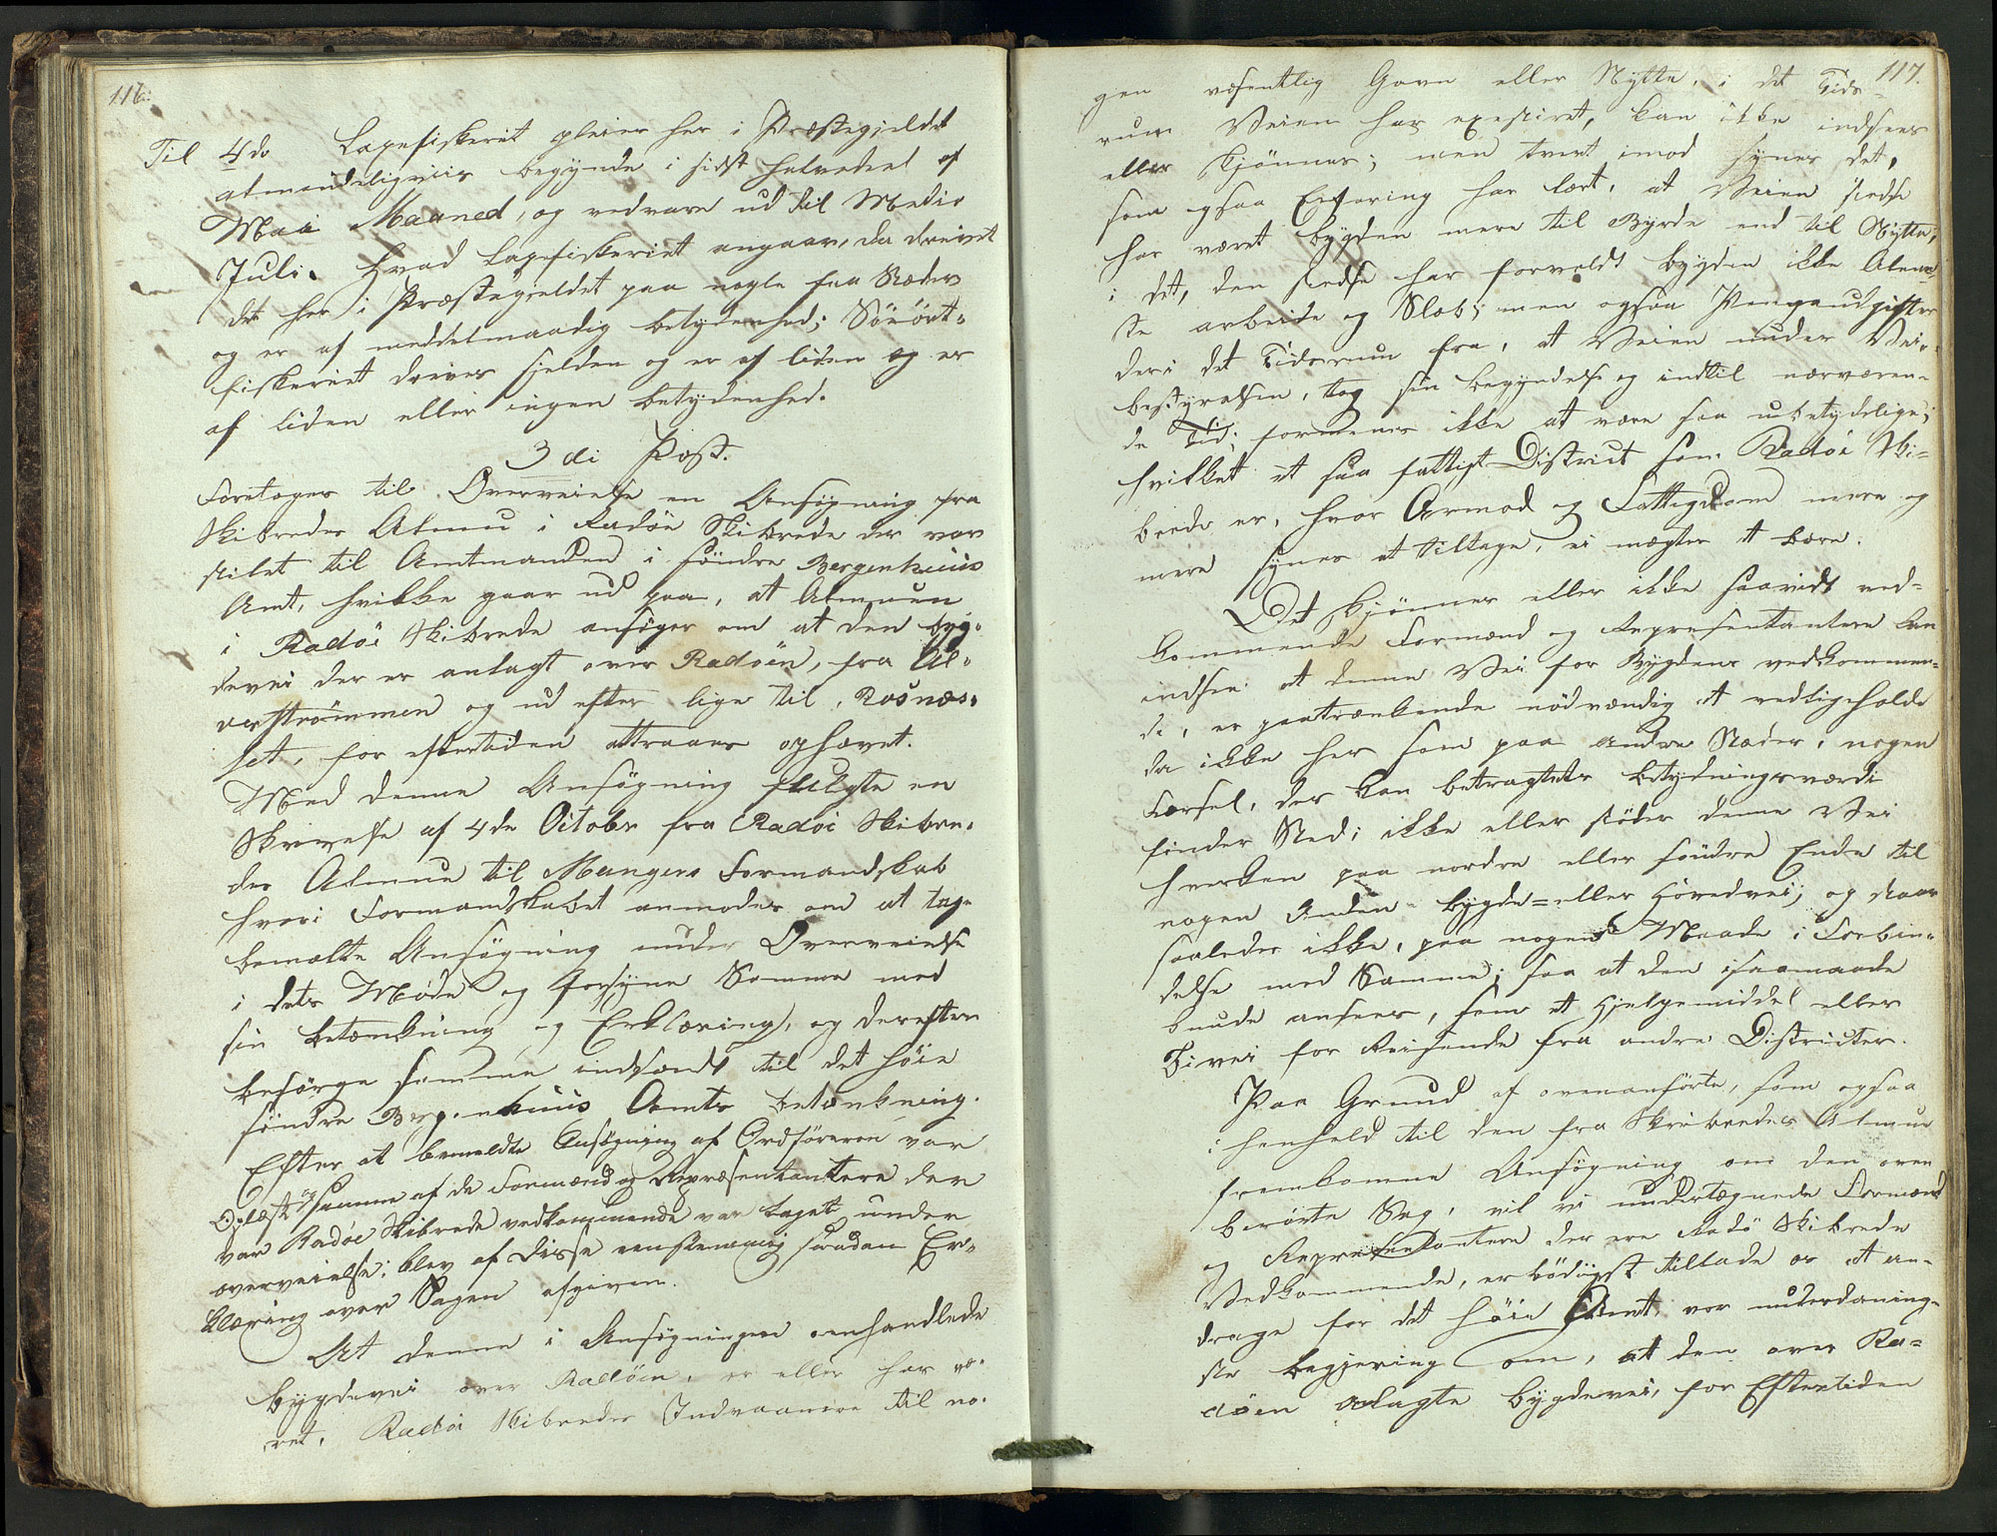 116.
Til 4do Laxefiskeriet pleier her i Præstegjeldet
almindeligviis begynde i sidst halvedeel af
Mai Maaned, og vedvare ud til Medio
Juli. Hvad Laxefiskeriet angaar, da drives
det her i Præstegjeldet paa nogle faa Stæder
og er af middelmaadig betydenhed; Söeört-
fiskeriet drives sjelden og er af liden og er
af liden eller ingen betydenhed.
3di Post.
Foretoges til Overveielse en Ansögning fra
Skibredes Almue i Radöe Skibrede der var
stilet til Amtmanden i söndre Bergenhuus
Amt, hvilke gaar ud paa, at Almuen
i Radöe Skibrede ansöger om at den byg-
devei der er anlagt over Radöen, fra Al-
verströmmen og ud efter lige til, Rosnæs-
set, for eftertiden attraaes ophævet.
Med denne Ansögning fulgte en
Skrivelse af 4de Octobr fra Radöe Skibre-
des Almue til Mangers Formandskab
hvori Formandskabet anmodes om at tage
bemælte Ansögning under Overveielse
i dets Möde og forsyne Samme med
sin Betænkning og Erklæring, og derefter
besörge samme indsendt til det höie
söndre Bergenhuus Amts Betænkning.
Efter at bemeldte Ansögning af Ordföreren var
Oplæst og samme af de Formænd og Repræsentantere der
var Radöe Skibrede vedkommende var taget under
overveielse; blev af disse eenstemmig saadan Er-
klæring over Sagen afgiven.
At denne i Ansögningen omhandlede
bygdevei over Radöen, er eller har væ-
ret, Radöe Skibredes Indvaanere til no-
117.
gen væsentlig Gavn eller Nytte, i det Tids-
rum Veien har existeret, kan ikke indsees
eller skjönnes; men tvert imod synes det,
som ogsaa Erfaring har lært, at Veien stedse
har været bygden mere til Byrde end til Nytte,
i det, den stedse har forvoldt bygden ikke Alene
arbeide og Slæb; men ogsaa Pengeudgifter
der i det Tidsrum fra, at Veien under Vei-
bestyrelsen, tog sin begyndelse og indtil nærværen-
de Tid; formenes ikke at være saa ubetydelige;
hvilket et saa fattigt District som Radöe Ski-
brede er, hvor Armod og Fattigdom mere og
mere synes at tiltage, ei mægter at bære.
Det skjönnes eller ikke saavidt ved-
kommende Formænd og Repræsentantere kan
indsee at denne Vei for Bygdens vedkommen-
de, er paatrænkende nödvændig at vedligeholde
da ikke her som paa andre Stæder, nogen
Færsel, der kan betragtets betydningsværdi
finder Sted; ikke eller stöder denne Vei
hverken paa nordre eller söndre Ende til
nogen Anden bygde=eller Hovedvei; og staar
saaledes ikke, paa nogen Maade i Forbin-
delse med Samme; saa at den isaamaade
kunde ansees, som et Hjelpemiddel eller
Bivei for Reisende fra andre Districter.
Paa Grund af ovenanförte, som ogsaa
i henhold til den fra Skibredes Almue
fremkomne Ansögning om den oven
berörte Sag, vil vi undertegnede Formænd
og Repræsentantere der ere Radö Skibrede
Vedkommende, erbödigst tillade os at an-
drage for det höie Amt, vor underdanig-
ste begjering om, at den over Ra-
döen anlagte bygdevei, for Eftertiden